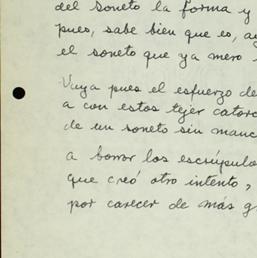 del soneto la forma y
pues, sabe bien que es,
el soneto que ya mero
Vaya pues el esfuerzo de
a con estos tejer cator
de un soneto sin manc
a borrar los escrúpulo
que creó otro intento,
por carecer de más g